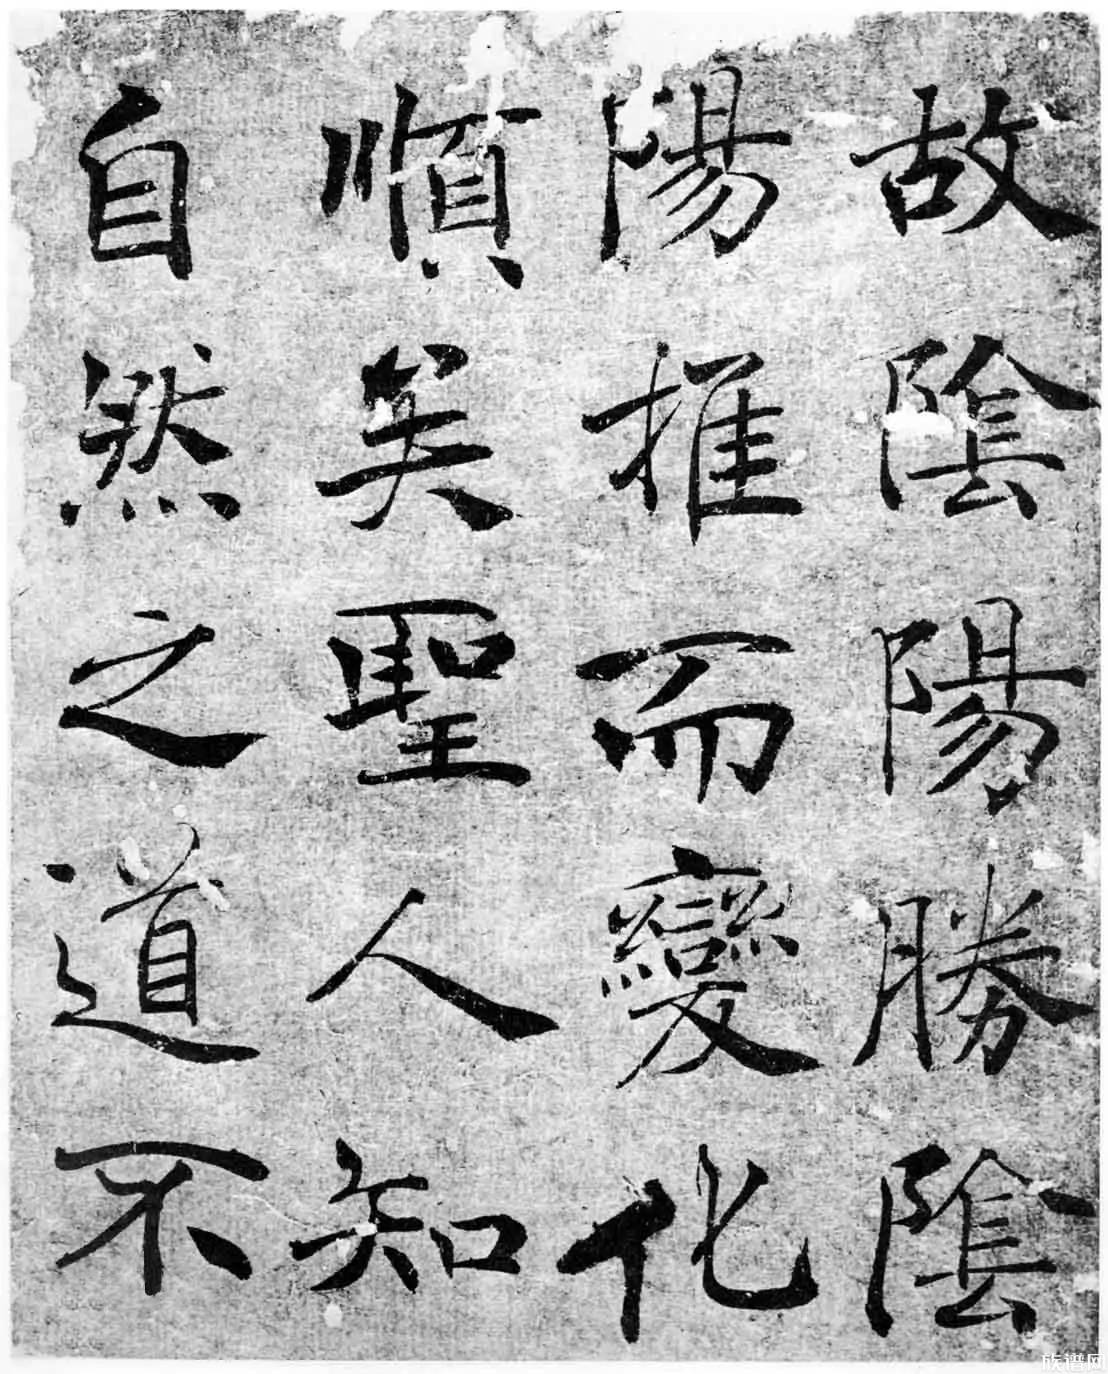 故陰陽勝陰
陽推而變化
順矣聖人知
自然之道不
族谱网